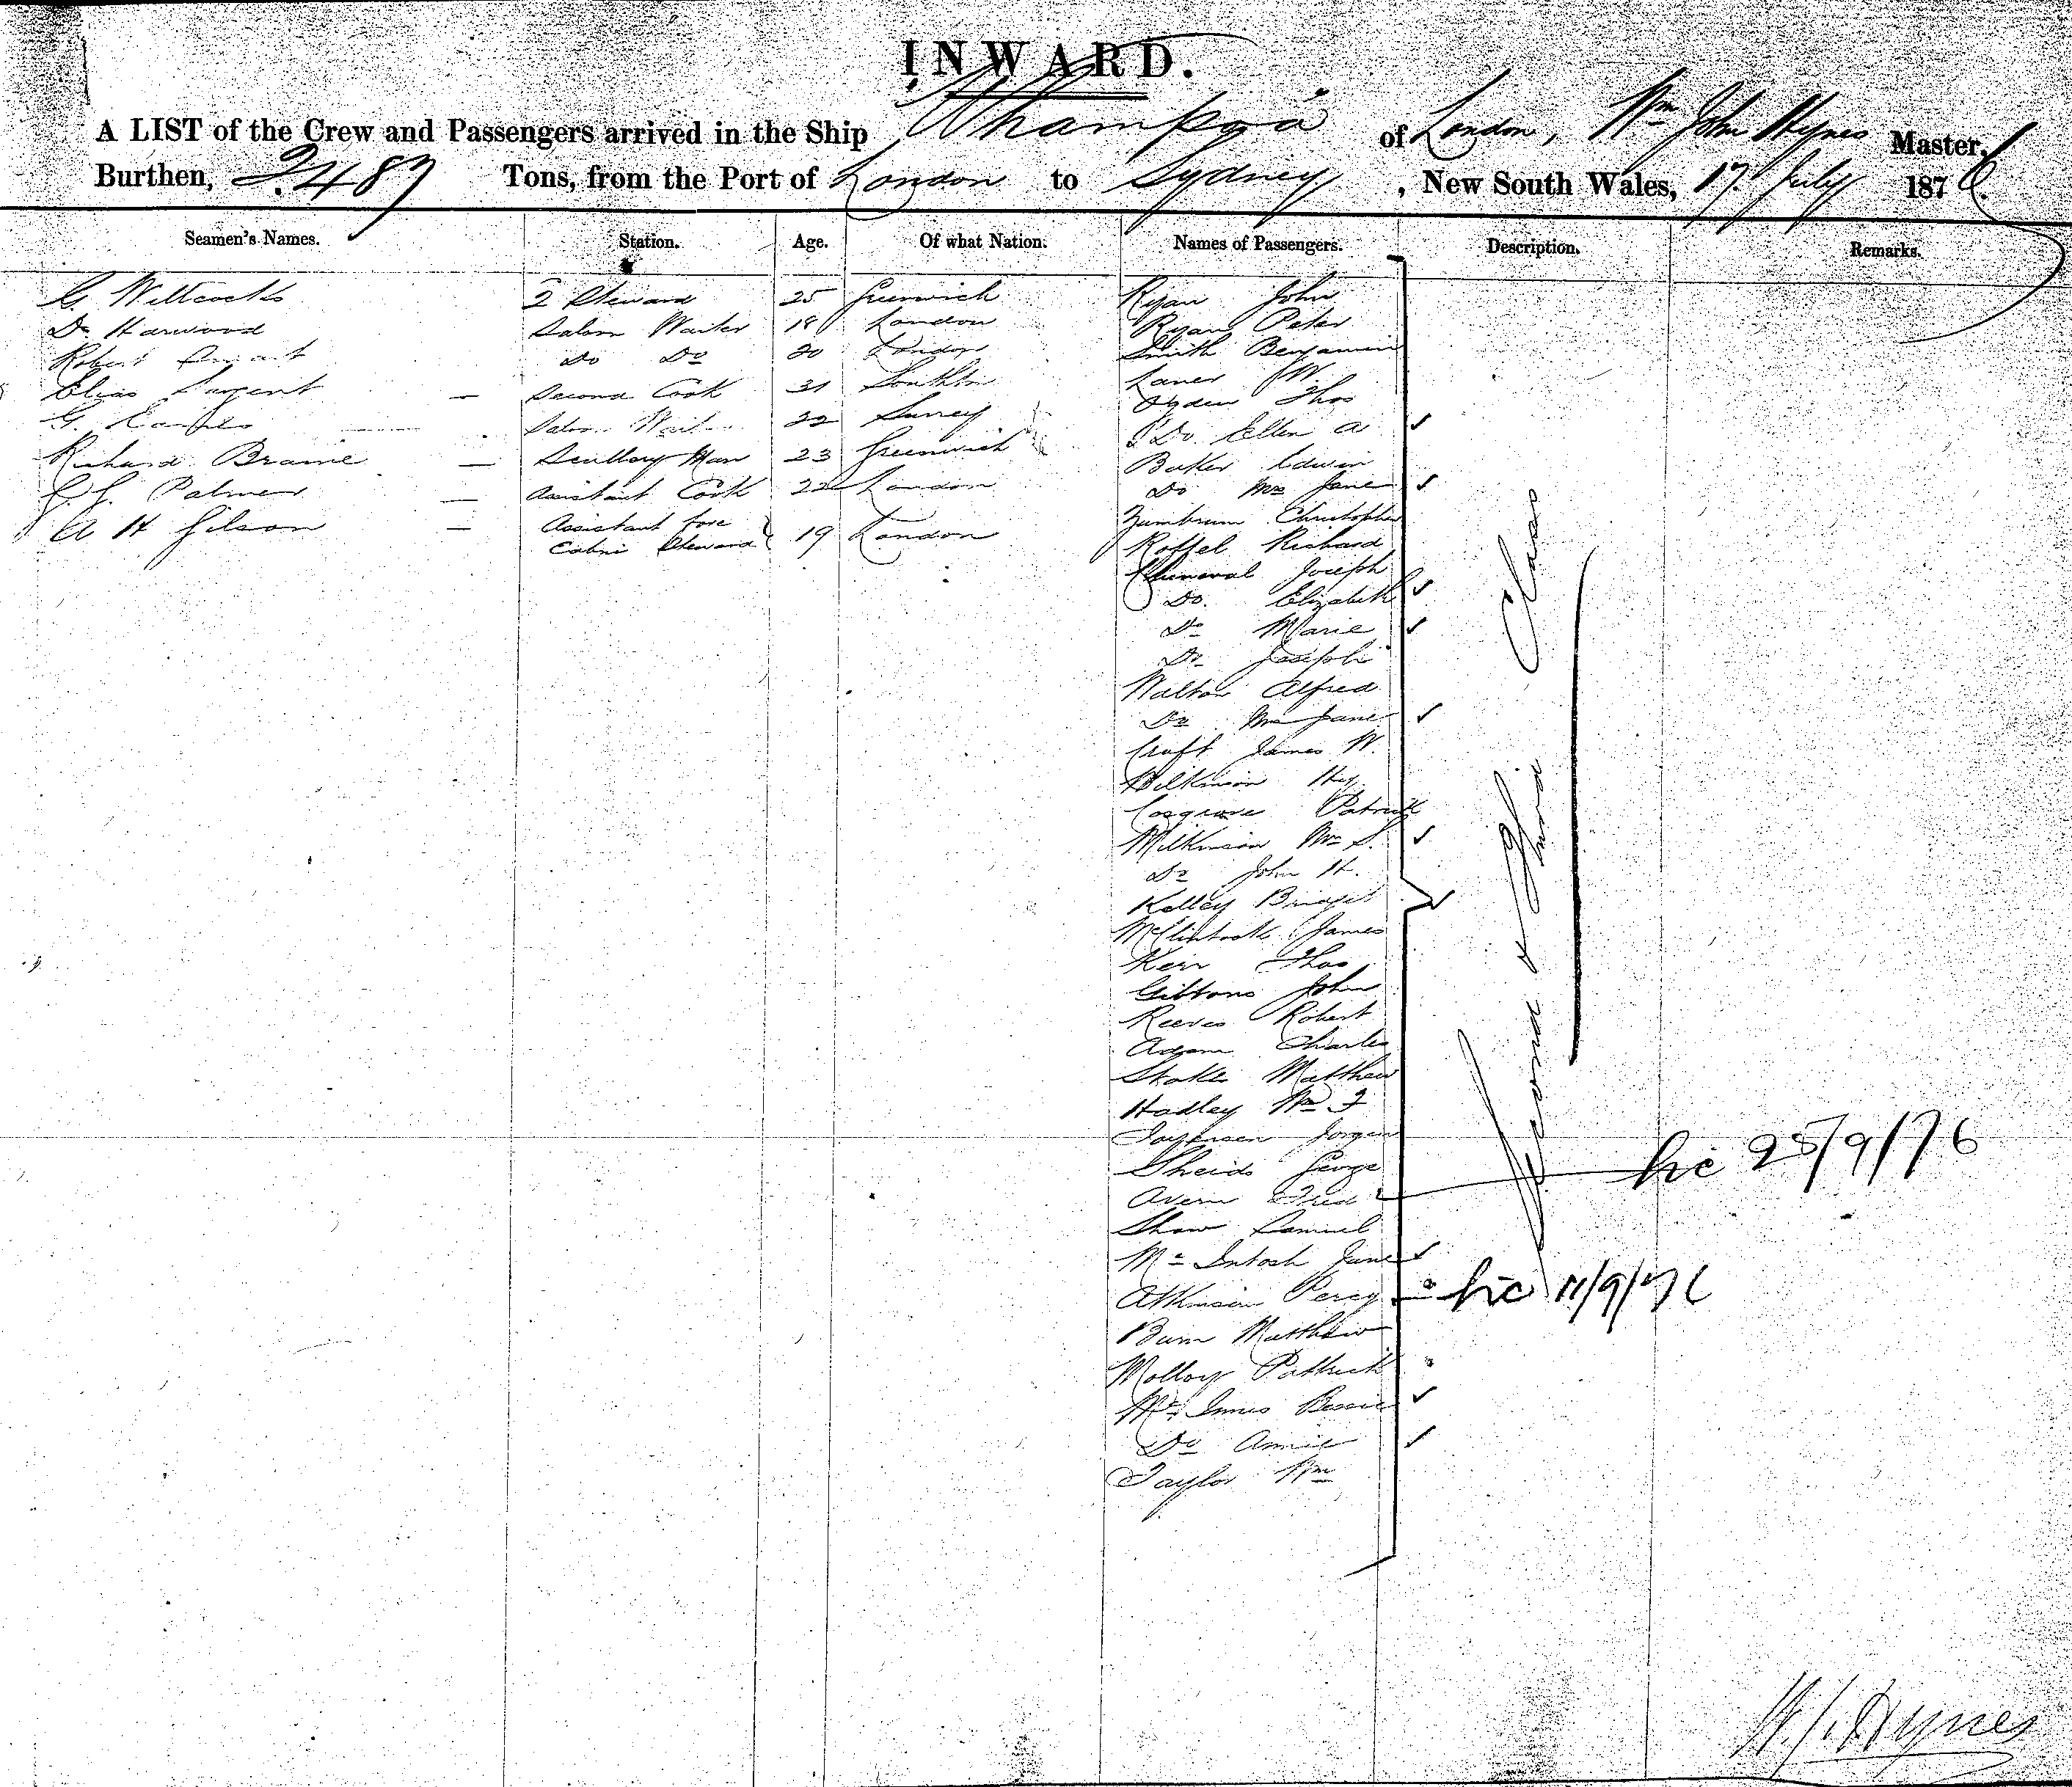 INWARD.
A LIST of the Crew and Passengers arrived in the Ship Whampoa of London, Wm John Hynes Master,
Burthen, 2487 Tons, from the Port of London to Sydney, New South Wales, 17 July 1876
Seamen's Names. Station. Age. Of what Nation. Names of Passengers. Description. Remarks.
G. Willcocks 2 Steward 25 Greenwich Ryan John
D. Harwood Saloon Waiter 18 London Ryan Peter
Robert Do Do 20 London Smith Benjamin
Elias Sargent Second Cook 31 Southtn Laner W.
G. Saloon Wait 22 Surrey Ogden Thos
Do Ellen A
Richard Brame Scullery Man 23 Greenwich Baker Edwin
Palmer Assistant Cook 22 London Do Mrs Jane
A H Gilson Assistant fore Cabin Steward 19 London Zumbrum Christopher
Roffel Richard
Joseph
Do. Elizabeth
Do Marie
Do Joseph
Walton Alfred
Do Mrs Jane
Craft James W.
Wilkinson Hy
Cosgrove Patrick
Wilkinson Wm S.
Do John H.
Kelley Bridget
McClintock James
Kerr Thos
Gibbons John
Reeves Robert
Adam Charles
Stokes Matthew
Hadley Wm J
Jorgen
George
Avern Fred hic 25/9/76
Shaw Samuel
Mc Intosh Jane
Atkinson Percy hic 11/9/76
Matthew
Molloy Patrick
Mc Innes Bessie
Do Annie
Taylor Wm
Second & Third Class
W. J. Hynes